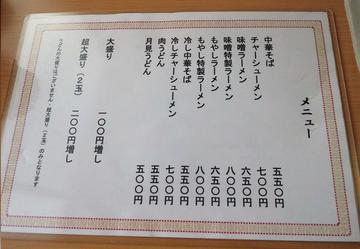 メニュー
中華そば 五五〇円
チャーシューメン 七〇〇円
味噌ラーメン 六五〇円
味噌特製ラーメン 八〇〇円
もやしラーメン 六五〇円
もやし特製ラーメン 八〇〇円
冷し中華そば 五五〇円
冷しチャーシューメン 七〇〇円
肉うどん 五五〇円
月見うどん 五五〇円
大盛り 一〇〇円増し
超大盛り（2玉） 二〇〇円増し
うどんの大盛りはございません・超大盛り（2玉）のみとなります